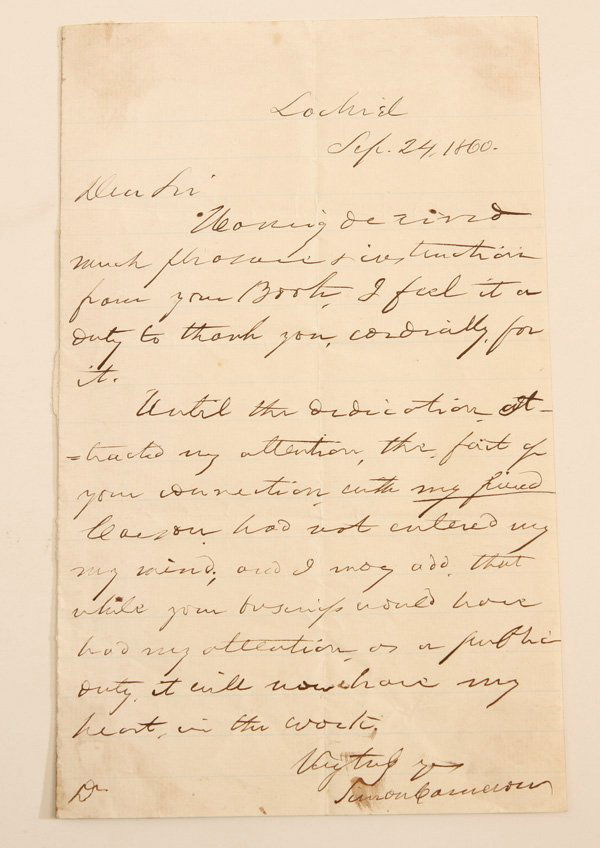 Lochiel
Sep. 24, 1860.
Dear Sir
Having derived
much pleasure & instruction
from your Book, I feel it a
duty to thank you, cordially, for
it.
Until the dedication at-
=tracted my attention, the fact of
your connection with my friend
had not entered my
my mind; and I may add that
while your business would have
had my attention as a public
duty, it will now have my
heart, in the work.
Very truly yrs
Simon Cameron
D